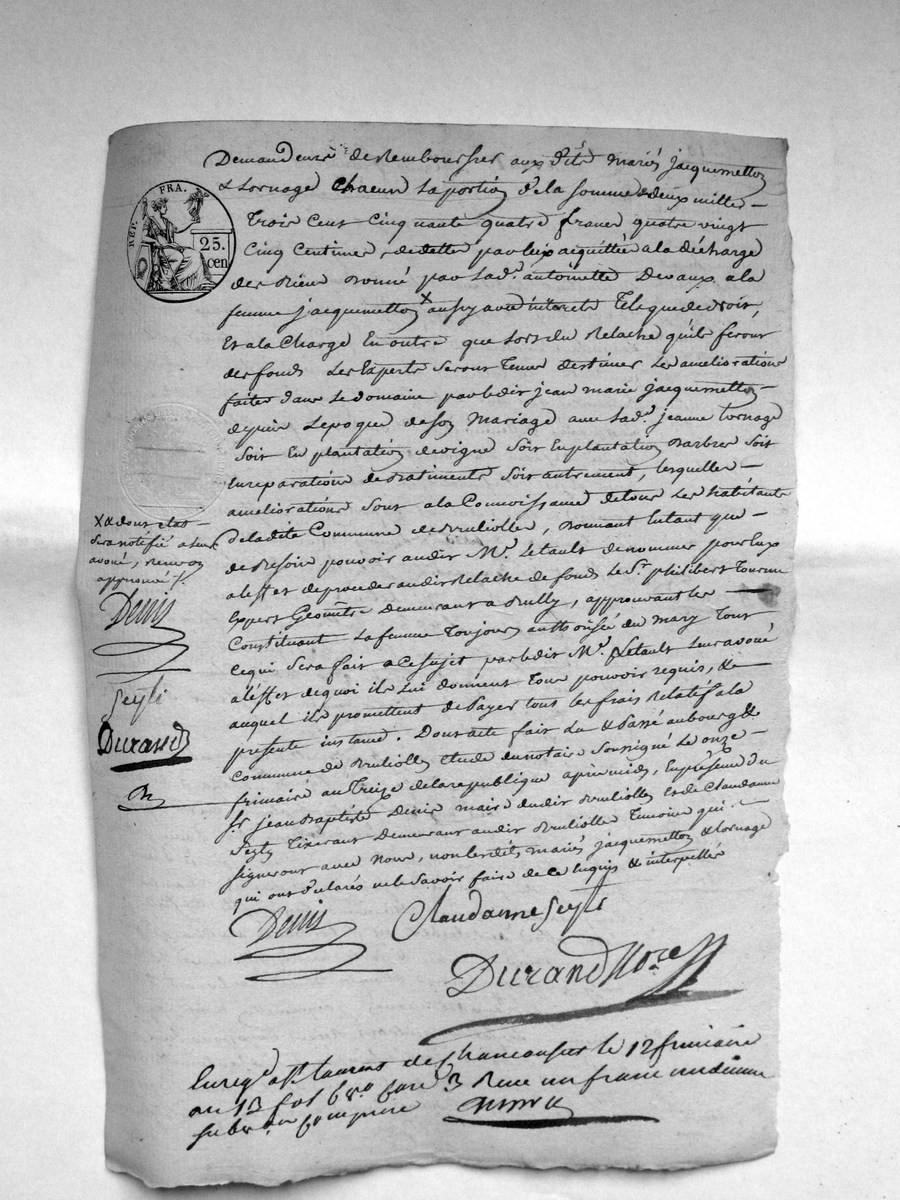 RÉP. FRA.
25.
cen
Demandeurs de Rembourser aux dits mariés jacquemetton
& tornage chacun La portion de la somme de deux mille
Trois Cent Cinquante quatre francs quatre vingt
Cinq Centimes, de dette par lui aquittée a la décharge
de par lad.e antoinette Devaux a la
femme jacquemetton x aussy avec interets Tels que de droit,
Et a la Charge En outre que Lors du Relache qu'ils feront
des fonds Les Experts Seront Tenus destimer Les ameliorations
faites dans Le domaine par ledit jean marie jacquemetton
depuis Lepoque de son Mariage avec Lad.e jeanne tornage
Soit En plantation de vigne Soit En plantation darbres Soit
En reparations de Batiments Soit autrement, lesquelles
ameliorations Sont a la Connoissance de tous Les habitants
de ladite Commune de Brulliolles, donnant En tant que
de Besoin pouvoir audit Mr. Letault de nommer pour Eux
a leffet de proceder audit Relache de fonds Le Sr. philibert
Expert Géomètre Demeurant a Brully, approuvant les
Constituants La femme Toujours authorisée du mary Tout
ce qui Sera fait a ce Sujet par ledit Mr. Letault Leur avoué
a leffet de quoi ils Lui donnent Tous pouvoirs requis, &
auquel ils promettent de Payer tous les frais Relatifs a la
presente instance. Dont acte fait Lu & Passé au bourg &
Commune de Brulliolles Etude du notaire Soussigné Le onze
frimaire an treize de la republique après midi, En présence du
Sr. jean Baptiste Denis maire dudit Brulliolles Et de Claudanne
Seyti Tixerant Demeurant audit Brulliolles Temoins qui
signeront avec Nous, non lesdits mariés jacquemetton & tornage
qui ont déclarés ne le Savoir faire de ce Requis & interpellés
X & dont Etat
Sera notifié a leur
avoué, Renvoy
approuvé
Denis
Seyti
Durand
Denis
Claudanne Seyti
Durand Nore
Enregé a St. laurent de Chamousset le 12 frimaire
an 13 fol 68 ro Case 3 Recu un franc un dixieme